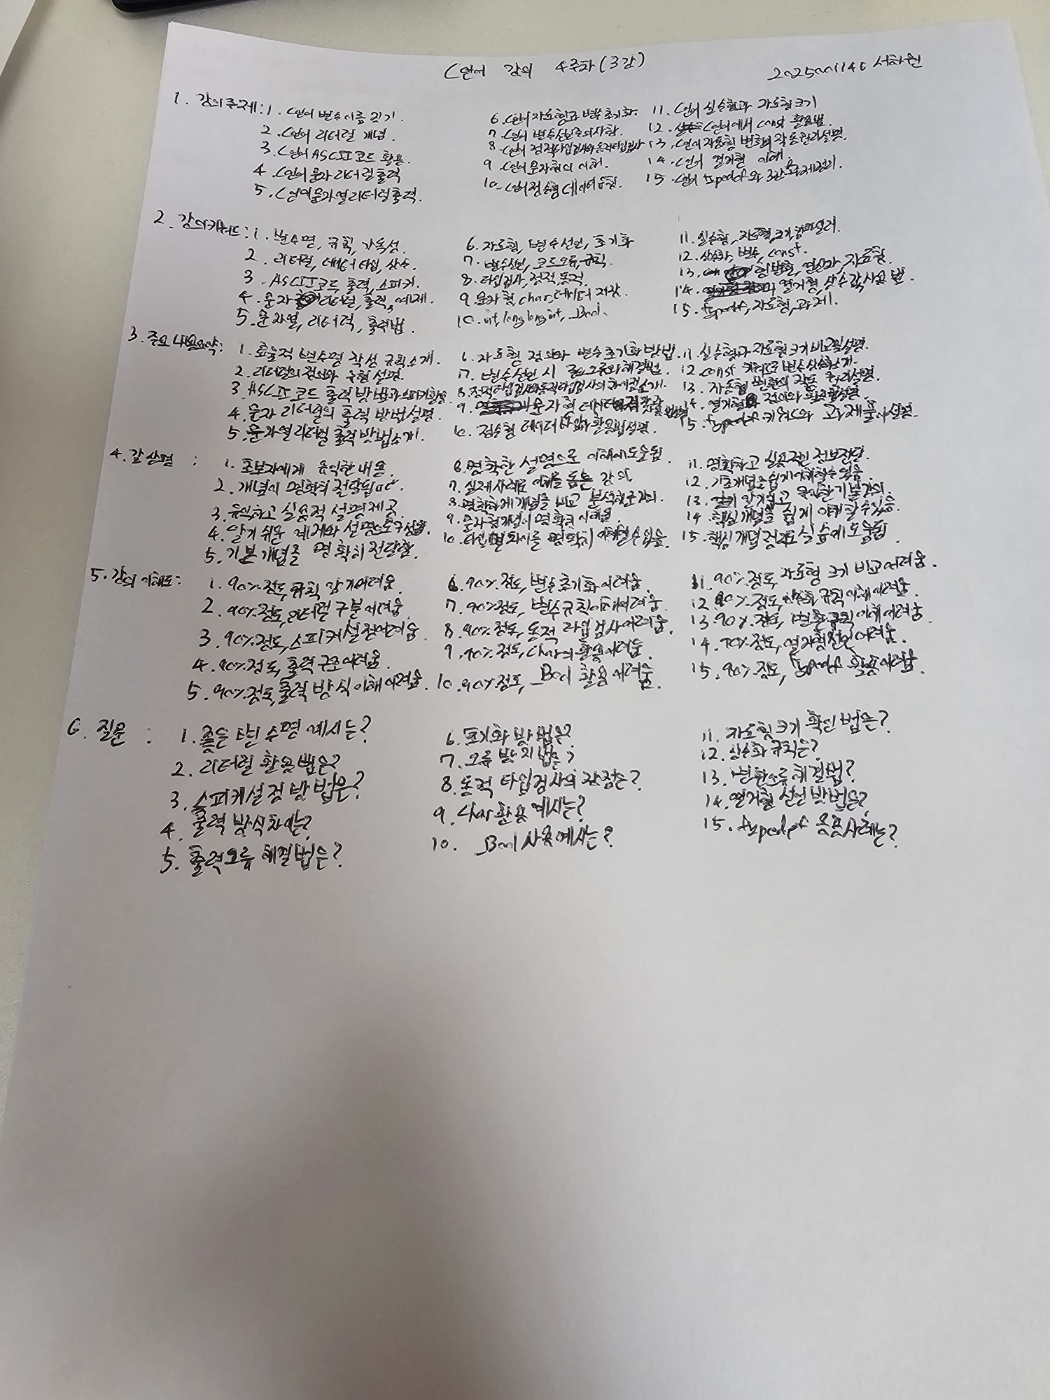 C언어 강의 4주차(3강)
서하원
1. 강의주제: 1. C언어 변수이름 짓기.
2. C언어 리터럴 개념.
3. C언어 ASCII코드 활용.
4. C언어 문자 리터럴 출력
5. C언어 문자열 리터럴 출력.
6. C언어 자료형과 변수 초기화.
7. C언어 변수선언 주의사항.
8. C언어 정적타입검사와 동적타입검사
9. C언어 문자형의 이해.
10. C언어 정수형 데이터타입.
11. C언어 실수형과 자료형크기
12. C언어에서 const 활용법.
13. C언어 자료형 변환의 작동원리설명.
14. C언어 열거형 이해
15. C언어 typedef와 3강 과제정리.
2. 강의키워드: 1. 변수명, 규칙, 가독성
2. 리터럴, 데이터 타입, 상수
3. ASCII코드 출력, 스피커.
4. 문자 리터럴, 출력, 예제.
5. 문자열, 리터럴, 출력법
6. 자료형, 변수선언, 초기화
7. 변수선언, 코드오류, 규칙
8. 타입검사, 정적, 동적
9. 문자형, char, 데이터 저장
10. int, long long int, _Bool.
11. 실수형, 자료형,크기,
12. 상수화, 변수, const.
13. 형변환, 연산자, 자료형
14. 열거형, 상수값,
15. typedef, 자료형, 과제.
3. 주요 내용요약: 1. 효율적 변수명 작성 규칙소개.
2. 리터럴의 정의와 유형 설명.
3. ASCII 코드 출력 방법과 스피커활용
4. 문자 리터럴의 출력 방법설명
5. 문자열 리터럴 출력 방법소개.
6. 자료형 정의와 변수초기화방법
7. 변수선언 시 주요 오류와 해결법
8. 정적타입검사와 동적타입검사의 차이점소개.
9. 문자형 데이터
10. 정수형 데이터 타입과 활용법설명.
11. 실수형과 자료형 크기 비교설명.
12. const 키워드로 변수 상수화소개.
13. 자료형 변환의 작동 원리설명.
14. 열거형 정의와 활용법설명
15. typedef 키워드와 과제물 설명
4. 강 상평 : 1. 초보자에게 유익한 내용.
2. 개념이 명확히 전달됩니다.
3. 유익하고 실용적 설명제공.
4. 알기 쉬운 예제와 설명으로 구성됨.
5. 기본 개념을 명확히 전달함.
6. 명확한 설명으로 이해에 도움됨
7. 실제 사례로 이해를 돕는 강의
8. 명확하게 개념을 비교 분석한 강의.
9. 문자형개념이 명확히 이해됨.
10. 타입별 차이를 명확히 이해할 수 있음.
11. 명확하고 실용적인 정보전달
12. 기초개념을 쉽게 이해할 수 있음
13. 알기 쉽고 유익한 기본강의
14. 핵심 개념을 쉽게 이해할 수 있음
15. 핵심 개념 정리로 실습에 도움됨
5. 강의 이해도: 1. 90%정도, 규칙 암기어려움
2. 90%정도, 리터럴 구분 어려움
3. 90%정도, 스피커설정어려움
4. 90%정도, 출력 구조어려움
5. 90%정도, 출력 방식 이해 어려움.
6. 90%정도, 변수초기화 어려움
7. 90%정도, 변수규칙이해어려움
8. 90%정도, 동적 타입 검사어려움.
9. 90%정도, char의 활용 어려움.
10. 90%정도, _Bool 활용 어려움
11. 90%정도, 자료형 크기 비교어려움.
12. 90%정도, 상수화 규칙이해 어려움
13. 90%정도, 변환규칙이해 어려움
14. 90%정도, 열거형선언 어려움.
15. 90%정도, typedef 활용어려움
6. 질문 : 1. 좋은 변수명 예시는?
2. 리터럴 활용 법은?
3. 스피커설정 방법은?
4. 출력 방식차이는?
5. 출력오류 해결법은?
6. 초기화 방법은?
7. 오류 방지법은?
8. 동적 타입검사의 장점은?
9. char활용 예시는?
10. _Bool 사용예시는?
11. 자료형크기 확인 법은?
12. 상수화 규칙은?
13. 변환오류 해결법?
14. 열거형 선언 방법은?
15. typedef 응용사례는?